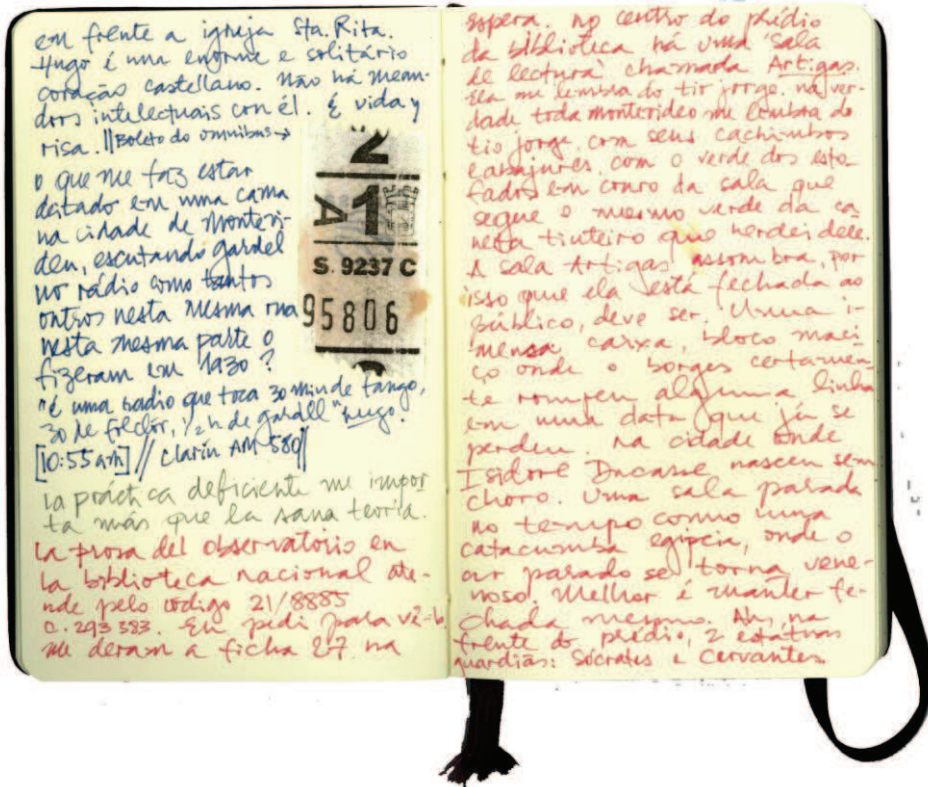 em frente a igreja Sta. Rita.
Hugo é um enorme e solitário
coração castellano. Não há mean-
dros intelectuais con él. É vida y
risa. || Boleto do omnibus →
o que me faz estar
deitado em uma cama
na cidade de Montevi-
deu, escutando gardel
no rádio como tantos
outros nesta mesma rua
nesta mesma parte o
fizeram em 1930?
"é uma radio que toca 30 min de tango,
30 de folclor, 1/2 h de gardell" hugo.
[10:55 am] // Clarín AM 580 ||
La práctica deficiente me impor
ta más que la sana teoria.
La prosa del observatório en
la biblioteca nacional ate-
nde pelo código 21/8885
C. 293 583. Eu pedi para vê-lo
me deram a ficha 27. na
N
A 1
S. 9237 C
95806
espera. no centro do prédio
da biblioteca há uma 'sala
de lectura' chamada Artigas.
Ela me lembra do tio jorge. na ver-
dade toda montevideo me lembra do
tio jorge. com seus cachimbos
e abajures. com o verde dos esto-
fados em couro da sala que
segue o mesmo verde da ca
neta tinteiro que herdei dele.
A sala Artigas assombra, por
isso que ela está fechada ao
público, deve ser. Uma i-
mensa caixa, bloco maci-
ço onde o borges certamen-
te rompeu alguma linha
em uma data que já se
perdeu. na cidade onde
Isidore Ducasse nasceu sem
choro. Uma sala parada
no tempo como uma
catacumba egípcia, onde o
ar parado se torna vene-
noso. Melhor é manter fe-
chada mesmo. Ah, na
frente do prédio, 2 estátuas
guardiãs: Sócrates e Cervantes